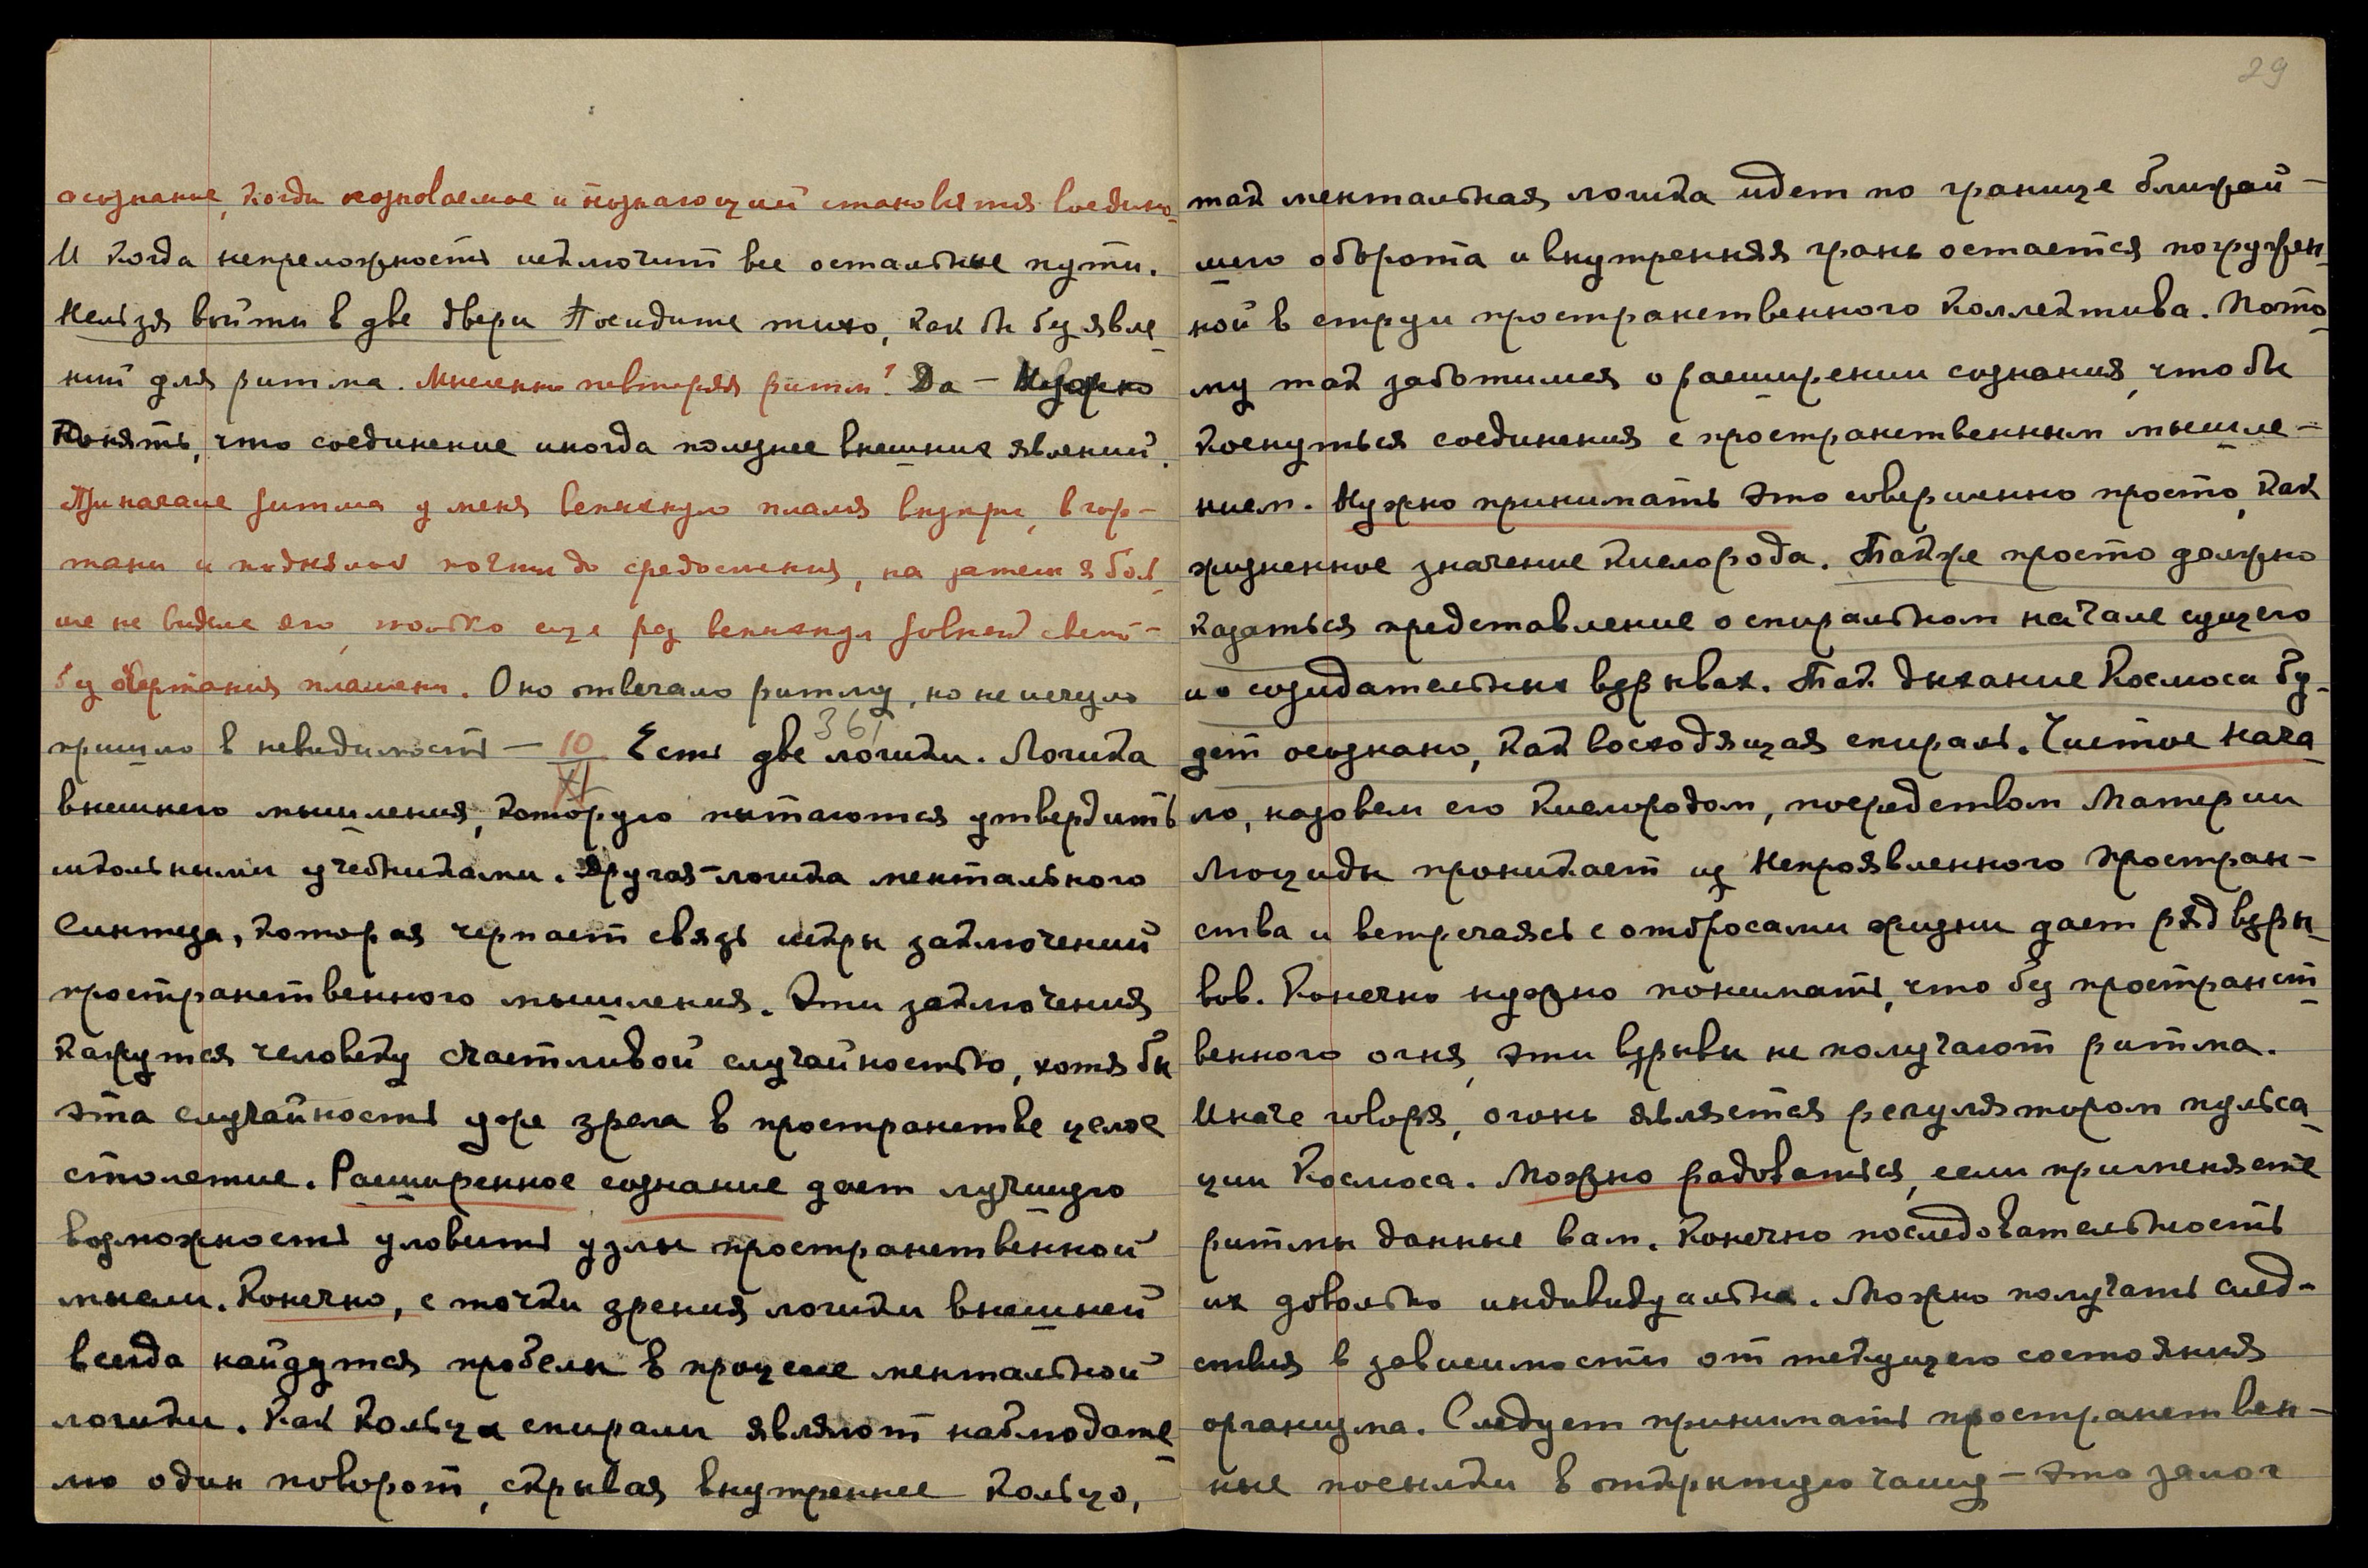 осознание, когда познаваемое и познающий становятся воедино.
И когда непреложность исключит все остальные пути.
Нельзя войти в две двери Посидите тихо, как бы без явле-
ний для ритма. Мысленно повторяя ритм? Да – Нужно
Понять, что соединение иногда полезнее внешних явлений.
При начале ритма у меня вспыхнуло пламя внутри, в гор-
тани и поднялось почти до средостения, на затем я боль-
ше не видела его, только еще раз вспыхнул ровный свет –
без очертания пламени. Оно отвечало ритму, но не исчезло
пришло в невидимость – 10/XI 361 Есть две логики. Логика
внешнего мышления, которую пытаются утвердить
школьными учебниками. Другая – логика ментального
Синтеза, которая черпает связь искры заключений
пространственного мышления. Эти заключения
кажутся человеку счастливой случайностью, хотя бы
эта случайность уже зрела в пространстве целое
столетие. Расширенное сознание дает лучшую
возможность уловить узлы пространственной
мысли. Конечно, с точки зрения логики внешней
всегда найдутся пробелы в процессе ментальной
логики. Как кольца спирали являют наблюдате-
лю один поворот, скрывая внутреннее кольцо,
29
так ментальная логика идет по границе ближай-
шего оборота и внутренняя грань остается погружен-
ной в струи пространственного Коллектива. Пото-
му так заботимся о расширении сознания, чтобы
коснуться соединения с пространственным мышле-
нием. Нужно принимать это совершенно просто, как
жизненное значение кислорода. Также просто должно
казаться представление о спиральном начале сущего
и о созидательных взрывах. Так дыхание Космоса бу-
дет осознано, как восходящая спираль. Чистое нача-
ло, назовем его Кислородом, посредством Материи
Люциды проникает из Непроявленного простран-
ства и встречаясь с отбросами жизни дает ряд взры-
вов. Конечно нужно понимать, что без пространст-
венного огня, эти взрывы не получают ритма.
Иначе говоря, огонь является регулятором пульса-
ции Космоса. Можно радоваться, если применяете
ритмы данные вам. Конечно последовательность
их довольно индивидуальна. Можно получать след-
ствия в зависимости от текущего состояния
организма. Следует принимать пространствен-
ные посылки в открытую чашу – это залог